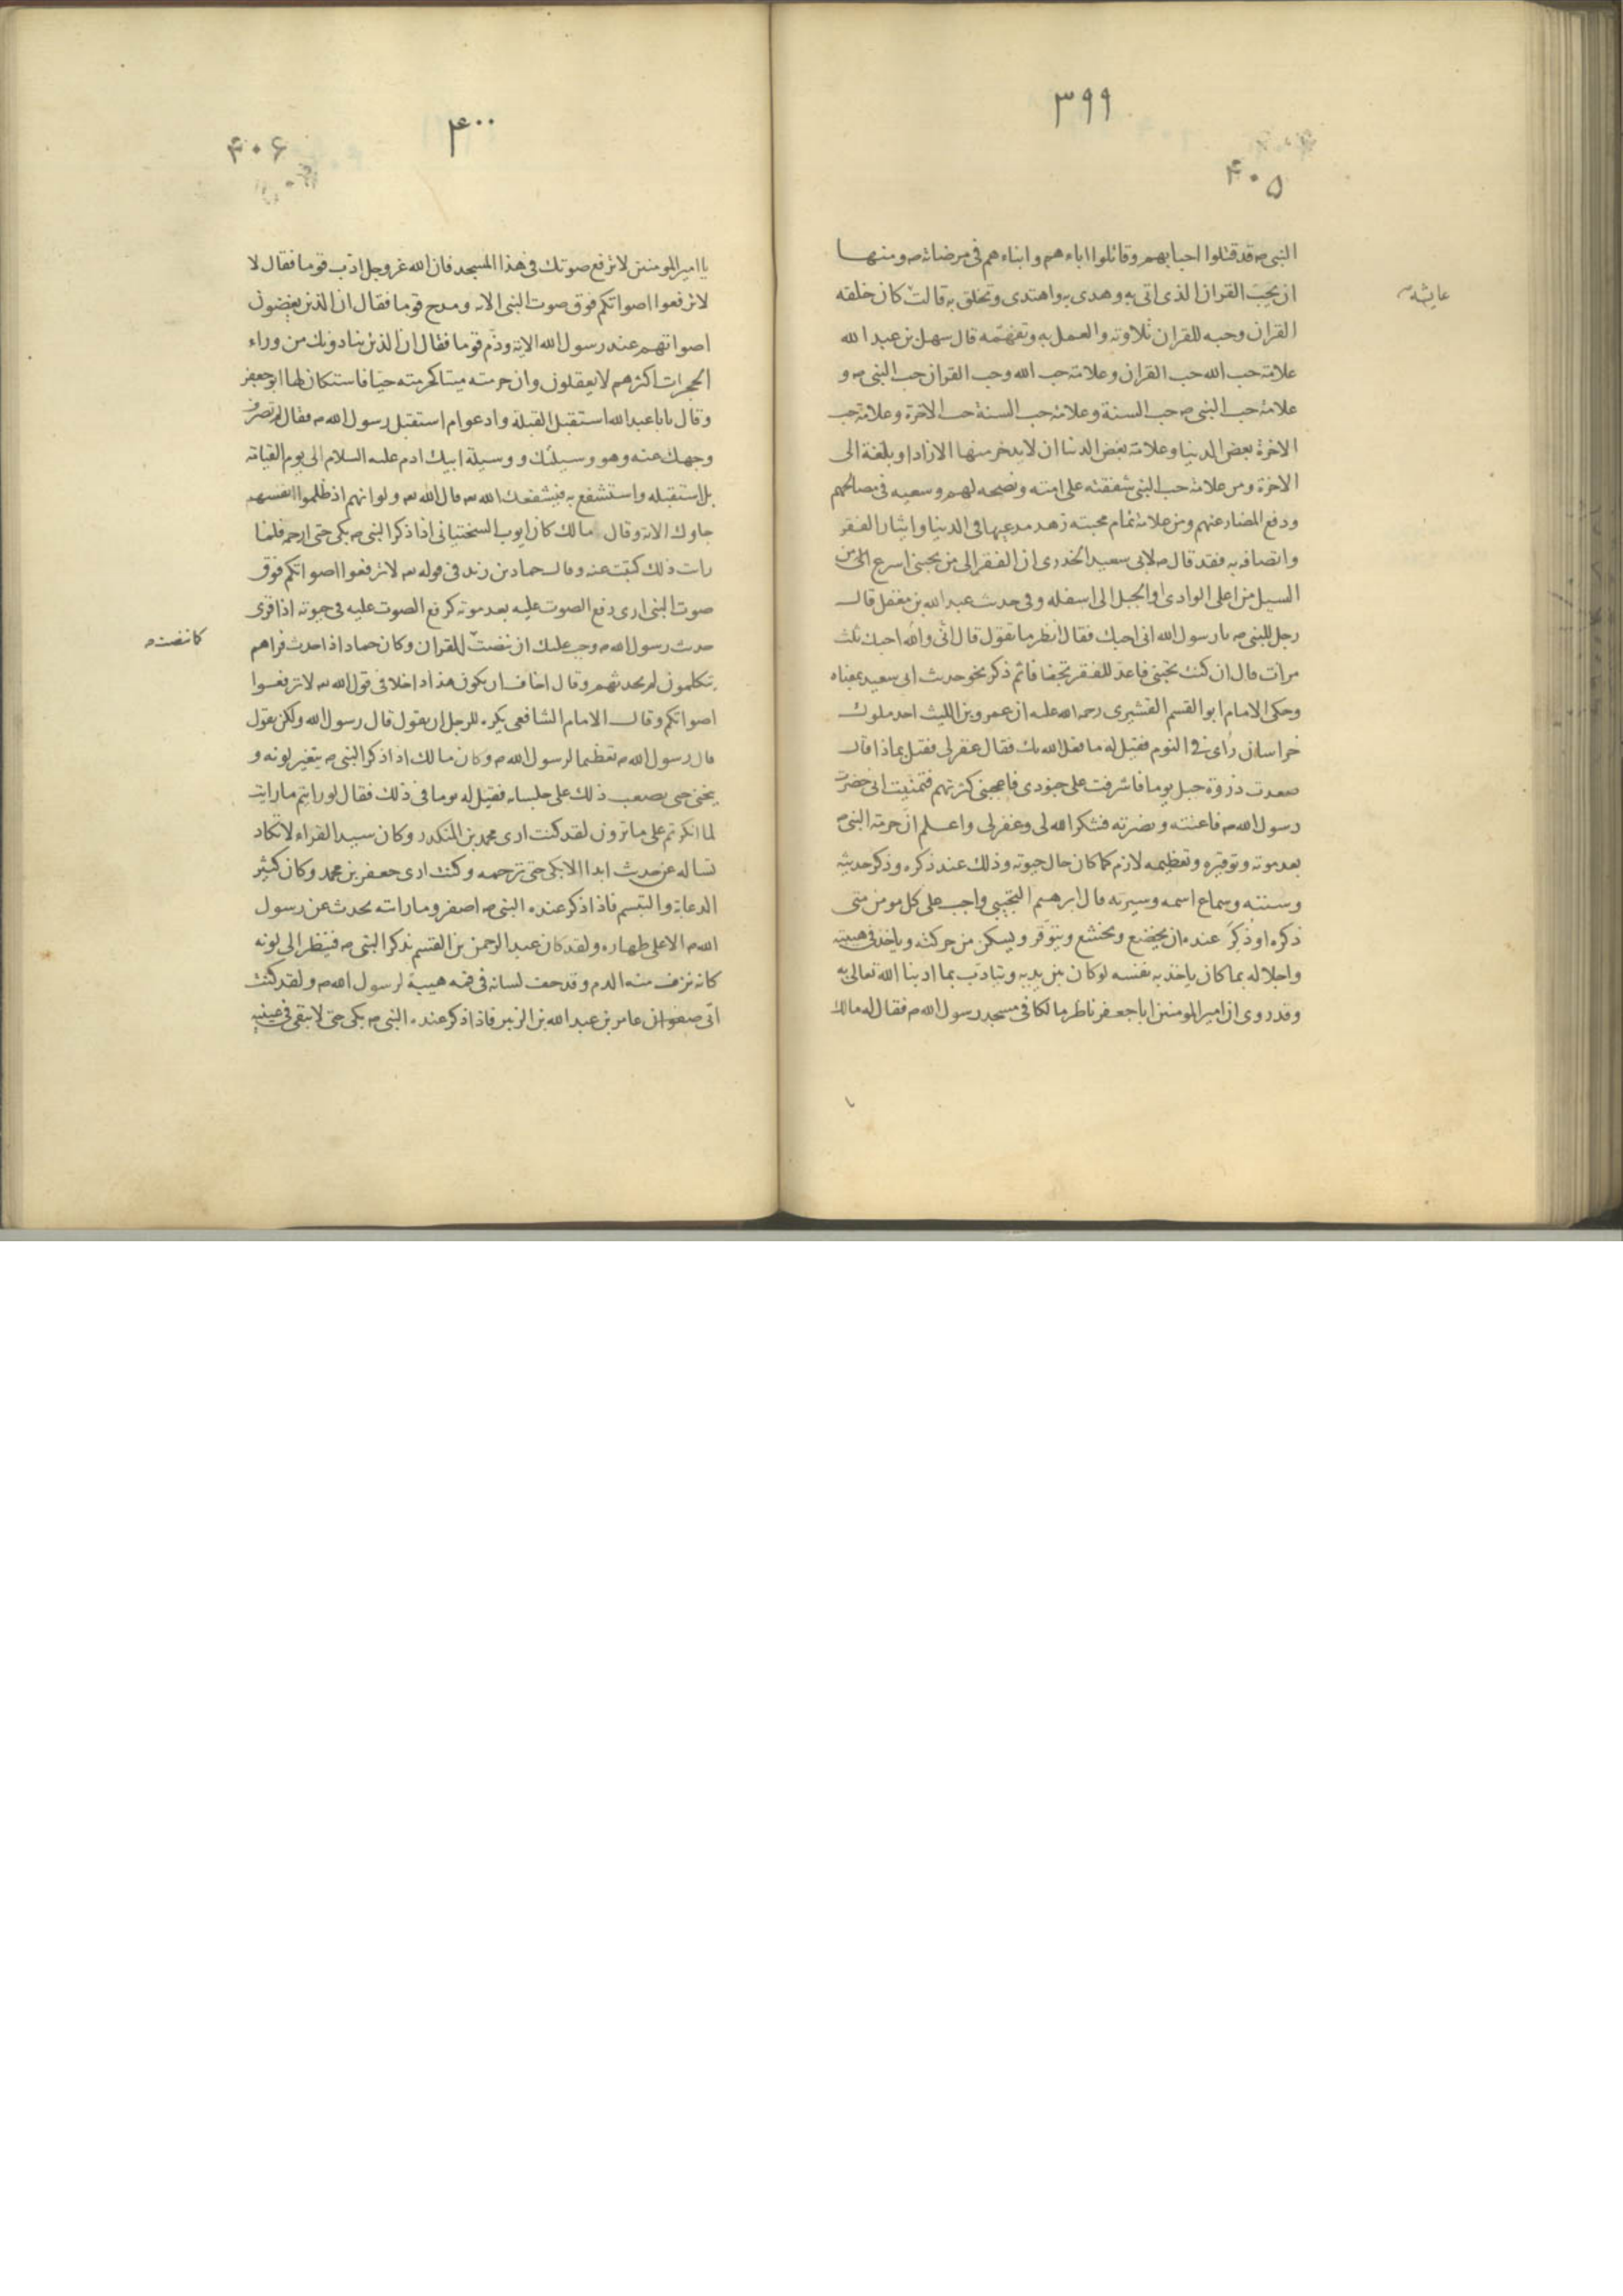 ٣٩٩
۴۰۵
النبی ص قد قتلوا احباءهم وقاتلوا اباءهم وابناءهم فی مرضاته ص ومنها
ان یحبّ القران الذی اتی به وهدی به واهتدی وتخلق به قالت کان خلقه
عایشه
القران وحبه للقران تلاوته والعمل به وتفهّمه قال سهل بن عبد الله
علامة حب الله حب القران وعلامة حب الله وحب القران حب النبی ص و
علامة حب النبی ص حب السنة وعلامة حب السنة حب الاخرة وعلامة حب
الاخرة بعض الدنیا وعلامة بغض الدنیا ان لا یدخر منها الا زادا وبلغة الی
الاخرة ومن علامة حب النبی شفقته علی امته ونصحه لهم وسعیه فی مصالحهم
ودفع المضار عنهم ومن علامة تمام محبته زهد مدعیها فی الدنیا وایثار الفقر
واتصافه به فقد قال ص لابی سعید الخدری ان الفقر الی من یحبنی اسرع الی من
السیل من اعلی الوادی او الجبل الی اسفله وفی حدیث عبد الله بن مغفل قال
رجل للنبی ص یا رسول الله انی احبك فقال انظر ما تقول قال انّی والله احبك ثلث
مرات قال ان کنت تحبّنی فاعد للفقر تجفافا ثم ذکر نحو حدیث ابی سعید بمعناه
وحکی الامام ابو القسم القشیری رحمه الله علیه ان عمرو بن اللیث احد ملوك
خراسان رأی فی النوم فقیل له ما فعل الله بك فقال غفر لی فقیل بماذا قال
صعدت ذروة جبل یوما فاشرفت علی جنودی فاعجبنی کثرتهم فتمنّیت انی حضرت
رسول الله ص فاعنته ونصرته فشکر الله لی وغفر لی واعلم انّ حرمة النبی ص
بعد موته وتوقیره وتعظیمه لازم کما کان حال حیوته وذلك عند ذکره وذکر حدیثه
وسنته وسماع اسمه وسیرته قال ابرهیم التجیبی واجب علی کل مومن متی
ذکره او ذُکِرَ عنده ان یخضع ویخشع ویتوقر ویسکن من حرکته ویاخذ فی هیبته
واجلاله بما کان یاخذ به نفسه لو کان بین یدیه ویتادّب بما ادبنا الله تعالی به
وقد روی ان امیر المومنین ابا جعفر ناظر مالکا فی مسجد رسول الله ص فقال له مالك
۴۰۰
۴۰۶
یا امیر المومنین لا ترفع صوتك فی هذا المسجد فان الله عز وجل ادّب قوما فقال لا
لا ترفعوا اصواتکم فوق صوت النبی الایه ومدح قوما فقال ان الذین یغضون
اصواتهم عند رسول الله الایة وذّم قوما فقال ان الذین ینادونك من وراء
الحجرات اکثرهم لا یعقلون وان حرمته میتا کحرمته حیّا فاستکان لها ابو جعفر
وقال یابا عبد الله استقبل القبلة وادعو ام استقبل رسول الله ص فقال لم تصرف
وجهك عنه وهو وسیلتك ووسیلة ابیك ادم علیه السلام الی یوم القیامة
بل استقبله واستشفع به فیشفعك الله قال الله ولو انهم اذ ظلموا انفسهم
جاوك الایة وقال مالك کان ایوب السختیانی اذا ذکر النبی ص بکی حتی ارحمه فلما
رایت ذلك کتبت عنه وقال حماد بن زید فی قوله لا ترفعوا اصواتکم فوق
صوت النبی اری رفع الصوت علیه بعد موته کرفع الصوت علیه فی حیوته اذا قری
حدیث رسول الله ص وجب علیك ان تنصت للقران وکان حماد اذا حدث فراهم
کانصت
یتکلمون لم یحدثهم وقال اخاف ان یکون هذا داخلا فی قول الله لا ترفعوا
اصواتکم وقال الامام الشافعی یکره للرجل ان یقول قال رسول الله ولکن یقول
قال رسول الله ص تعظیما لرسول الله ص وکان مالك اذا ذکر النبی ص یتغیر لونه و
ینحنی حتی یصعب ذلك علی جلسایه فقیل له یوما فی ذلك فقال لو رایتم ما رایت
لما انکرتم علی ما ترون لقد کنت اری محمد بن المنکدر وکان سید القراء لا تکاد
تساله عن حدیث ابدا الا بکی حتی ترحمه وکنت اری جعفر بن محمد وکان کثیر
الدعابة والتبسم فاذا ذکر عنده النبی ص اصفر وما رایته یحدث عن رسول
الله ص الا علی طهاره ولقد کان عبد الرحمن بن القسم یذکر النبی ص فینظر الی لونه
کانه نزف منه الدم وقد جف لسانه فی فمه هیبة لرسول الله ص ولقد کنت
اتی عامر بن عبد الله بن الزبیر فاذا ذکر عنده النبی ص بکی حتی لا تبقی فی عینیه